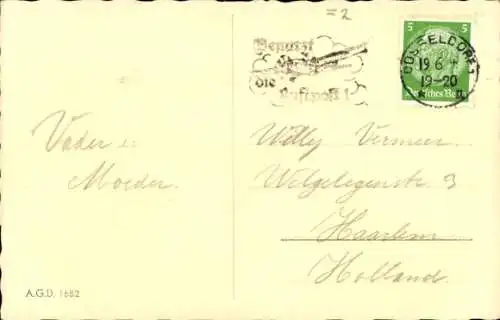 = 2
Benutzt
die
Luftpost!
5 5
Deutsches Reich
DÜSSELDORF 1
19 6
19-20
Vader en
Moeder.
Willy Vermeer
Welgelegenstr. 9
Haarlem
Holland.
A.G.D. 1682